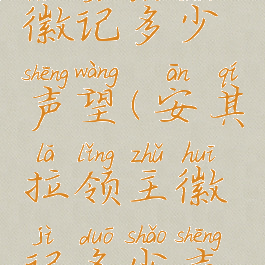 徽记多少
shēng wàng ān qí
声望(安其
lā lǐng zhǔ huī
拉领主徽
jì duō shǎo shēng
记多少声